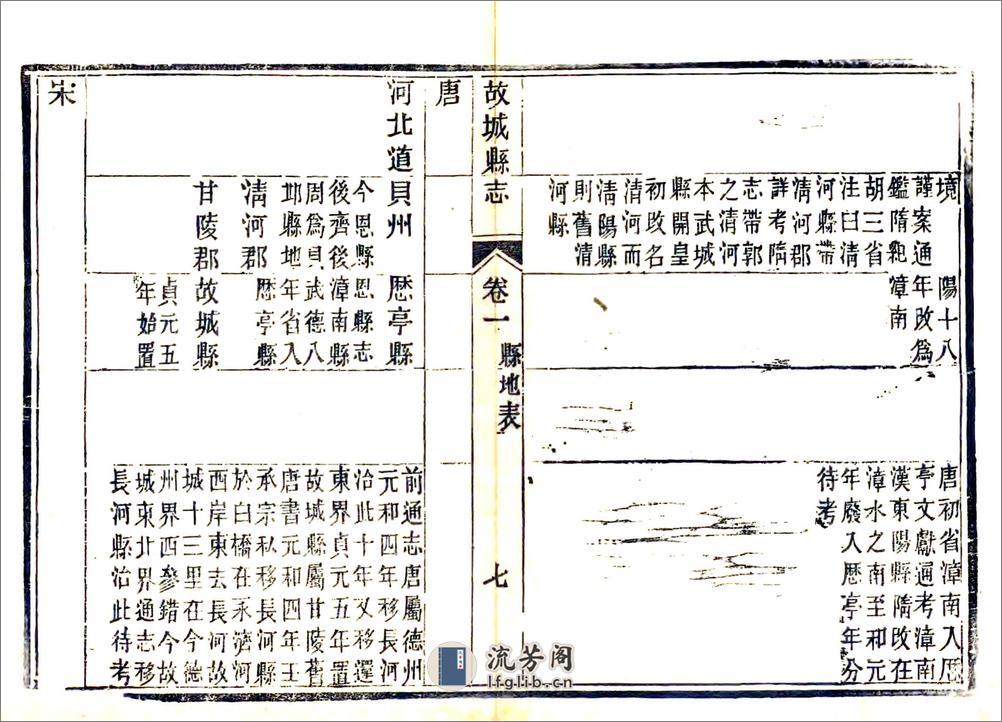 境
謹案通
鑑隋紀
胡三省
注曰淸
河縣帶
淸河郡
詳考隋
志帶郭
之淸河
本武城
縣開皇
初改名
淸河而
淸陽縣
則舊淸
河縣
陽十八
年改爲
漳南
唐初省漳南入厯
亭文獻通考漳南
漢東陽縣隋改在
漳水之南至和元
年廢入厯亭年分
待考
故城縣志
卷一
縣地表
七
唐
河北道
貝州
今恩縣
後齊後
周爲貝
邱縣地
淸河郡
甘陵郡
厯亭縣
恩縣志
漳南縣
武德八
年省入
厯亭縣
故城縣
貞元五
年始置
前通志唐屬德州
元和四年移長河
治此十年又移還
東界貞元五年置
故城縣屬甘陵舊
唐書元和四年王
承宗私移長河縣
於白橋在永濟河
西岸東去長河故
城十三里在今德
州界西參錯今故
城東北界通志移
長河縣治此待考
宋
流芳阁
lfglib.cn